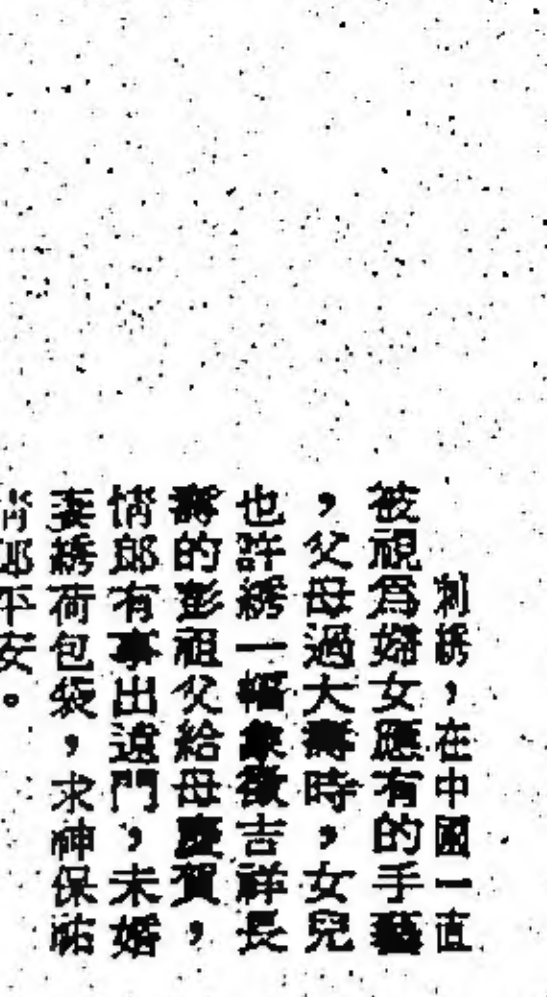 刺綉，在中國一直
被視爲婦女應有的手藝
，父母過大壽時，女兒
也許綉一幅象徵吉祥長
壽的彭祖父給母慶賀，
情郎有事出遠門，未婚
妻綉荷包袋，求神保祐
情郎平安。